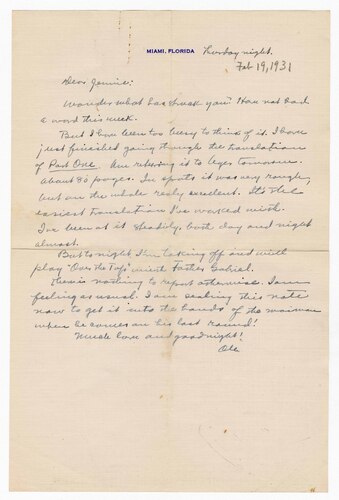 MIAMI, FLORIDA
Thursday night.
Feb 19, 1931
Dear Jennie:
Wonder what has struck you? Have not had
a word this week.
But I have been too busy to think of it. I have
just finished going through the translation
of Part One. Am returning it to tomorrow.
About 80 pages. In spots it was very rough,
but on the whole really excellent. It's the
easiest translation I've worked with.
I've been at it steadily, both day and night
almost.
But to night I'm taking off and will
play "Over the Top" with Father Gabriel.
There is nothing to report otherwise. I am
feeling as usual. I am sealing this note
now to get it into the hands of the
when he comes on his last round!
Much love and goodnight!
Ole